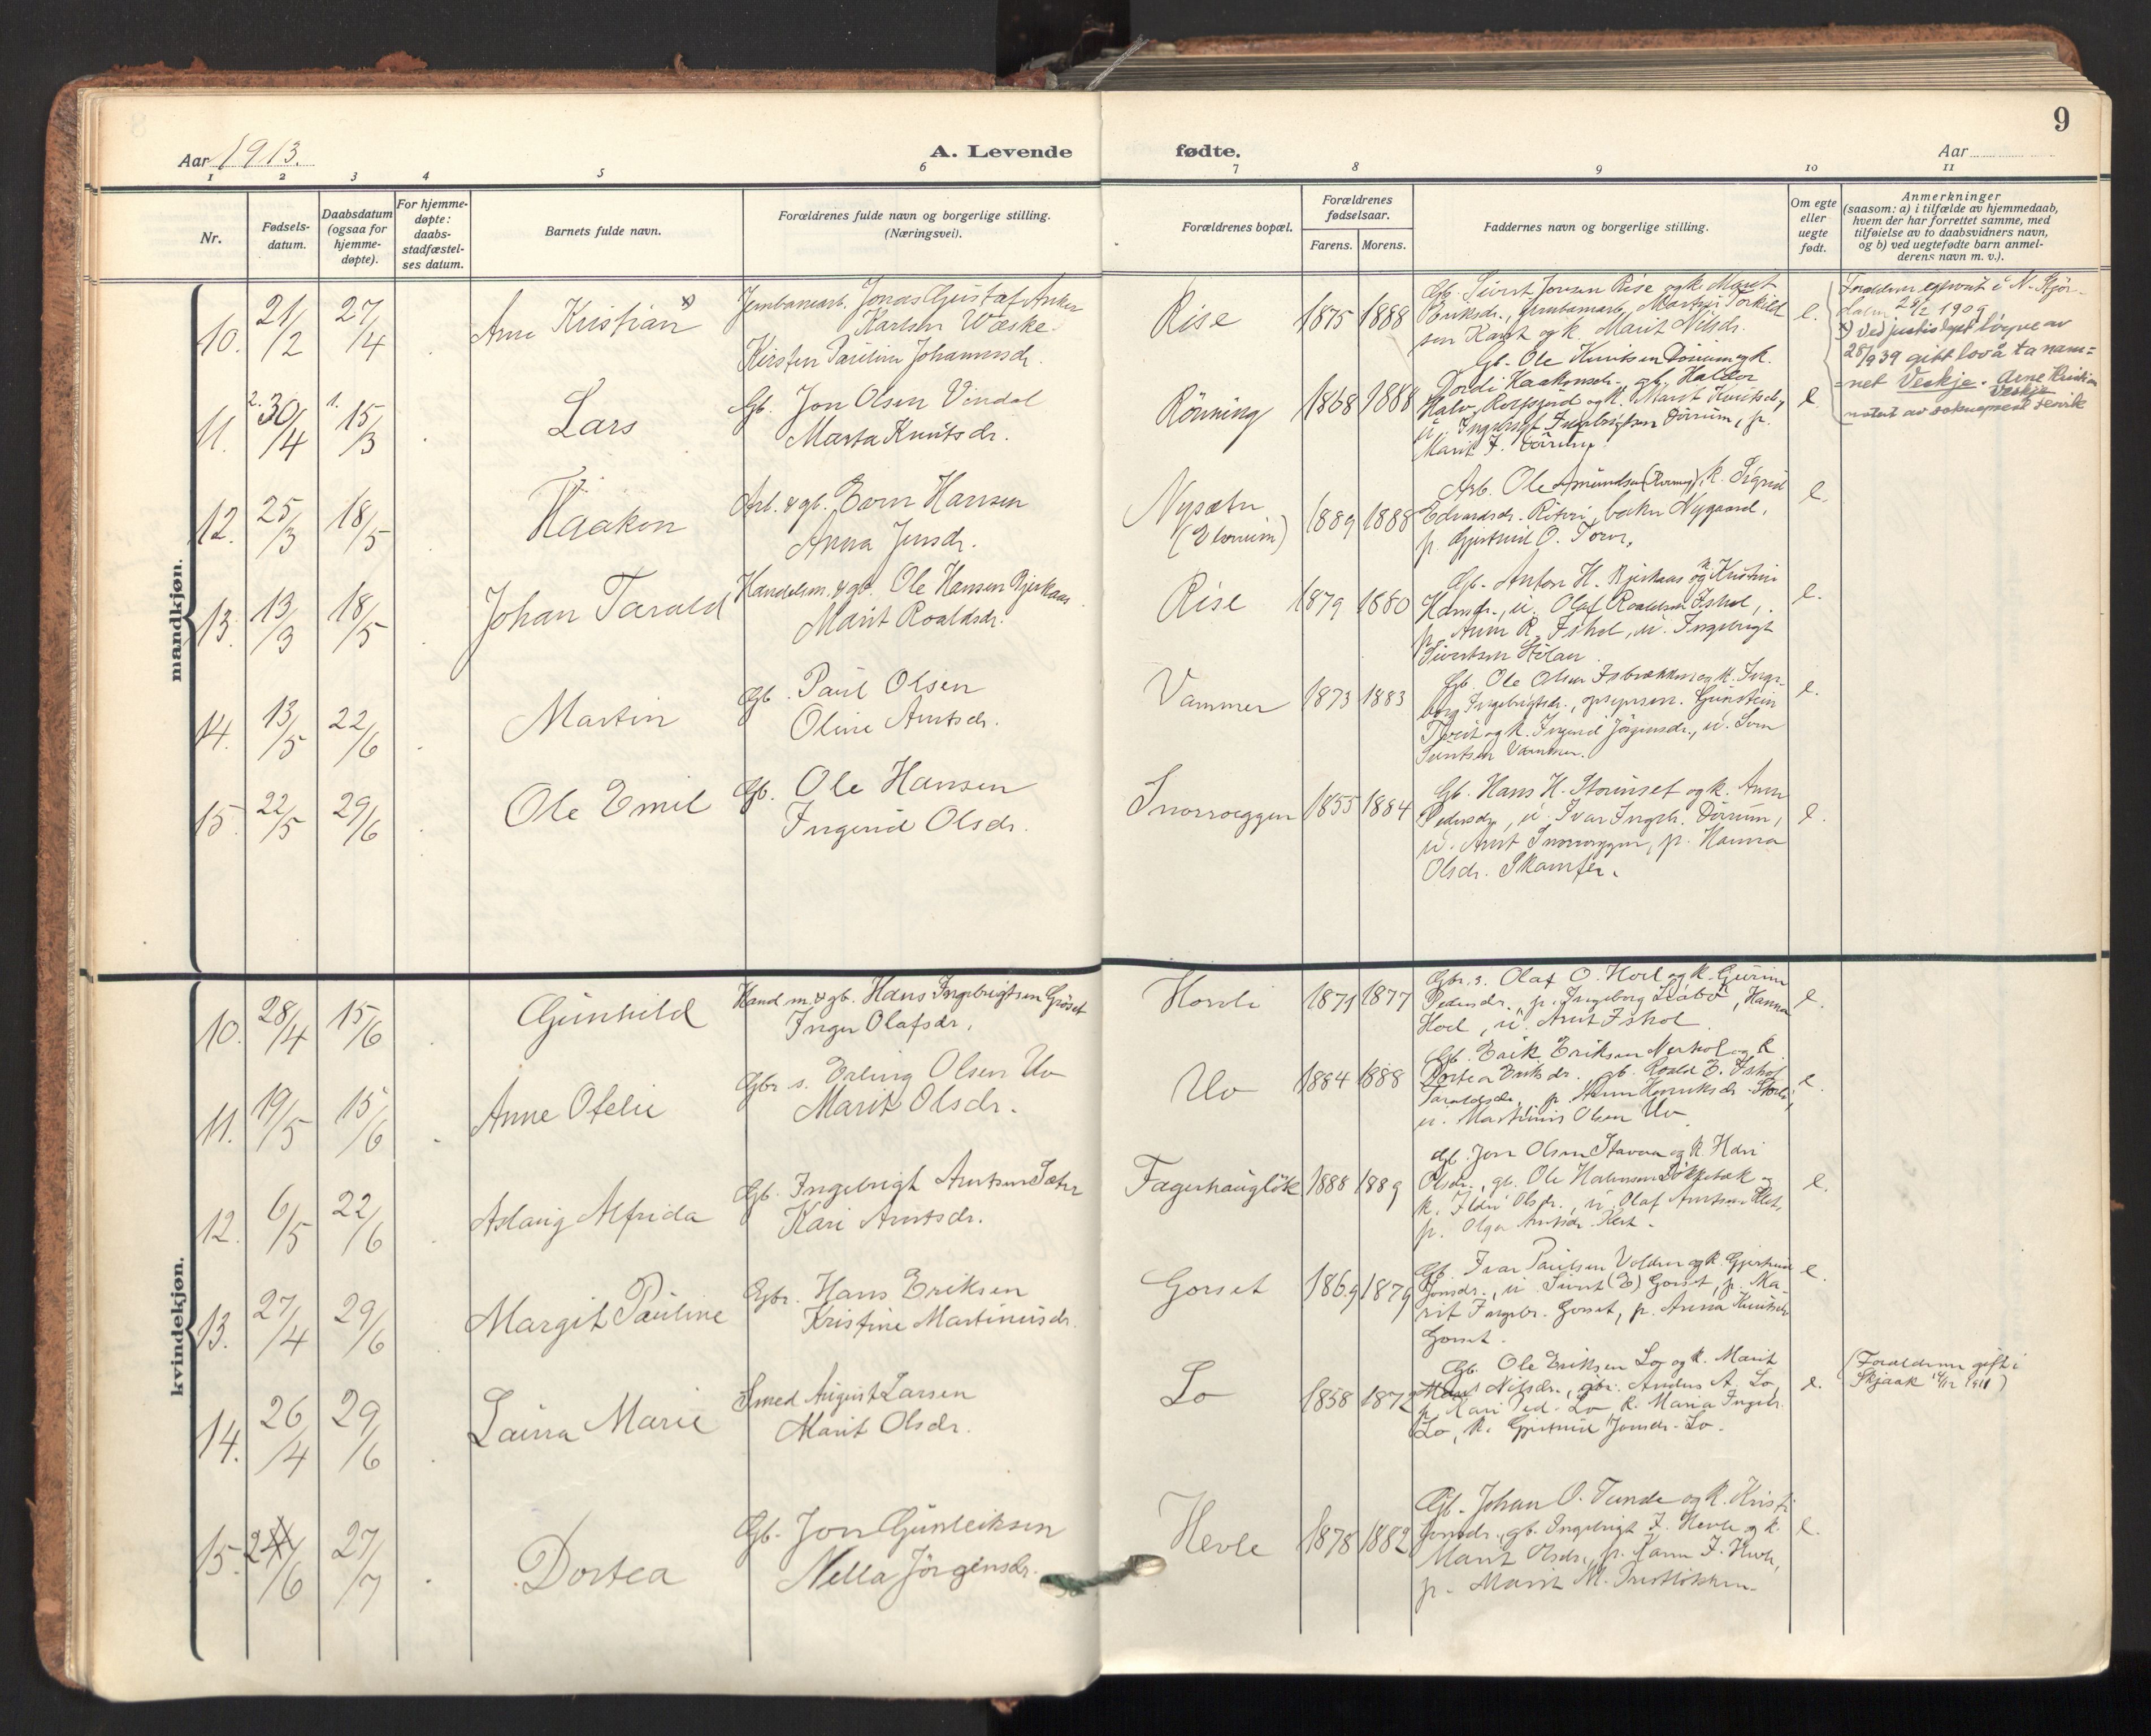 9
Aar 1913.
A. Levende
fødte.
Aar
1 2 3 4 5 6 7 8 9 10 11
Nr.
Fødsels-
datum.
Daabsdatum
(ogsaa for
hjemme-
døpte).
For hjemme-
døpte:
daabs-
stadfæstel-
ses datum.
Barnets fulde navn.
Forældrenes fulde navn og borgerlige stilling.
(Næringsvei).
Forældrenes bopæl.
Forældrenes
fødselsaar.
Farens. Morens.
Faddernes navn og borgerlige stilling.
Om egte
eller
uegte
født.
Anmerkninger
(saasom: a) i tilfælde av hjemmedaab,
hvem der har forrettet samme, med
tilføielse av to daabsvidners navn,
og b) ved uegtefødte barn anmel-
derens navn m. v.).
mandkjøn.
10. 21/2 27/4
Arne Kristian x)
Jernbanearb. Jonas Gustaf Anker
Karlsen Væske
Kirsten Pauline Johannesdr.
Rise
1875 1888
Gb. Sivert Jonsen Rise og k. Marit
Eriksdr., Jernbanearb. Torkild
sen og k. Marit Nilsdr.
e.
29/12 1909
x) Ved justisdept løyve av
28/9 39 gitt lov å ta nam=
=net Veskje. Arne Kristian
Veskje
11. 30/4 15/3
2. 1.
Lars
Gb. Jon Olsen Vindal
Marta Knutsdr.
Rönning
1868 1888
Gb. Ole Knutsen Dörum og k.
Dordi Haakonsdr., gb. Haldor
Halv. og k. Marit Knutsdr,
u. Ingebrigt Ingebrigtsen Dörrum, p.
Marit I. Dörrum.
e.
12. 25/3 18/5
Haakon
Arb. & gb. Even Hansen
Anna Jensdr.
Nysætr
1889 1888
Arb. Ole Amundsen k. Sigrid
Edvardsdr. Nygaard,
p. Gjertrud O.
e.
13. 13/3 18/5
Johan Tarald
Handelsm. & gb. Ole Hansen Bjerkaas
Marit Roaldsdr.
Rise
1879 1880
Gb. Anton H. Bjerkaas og k. Kristine
u. Olaf Roaldsen Ishol,
p. Anne R. Ishol, u. Ingebrigt
Sivertsen
e.
14. 13/5 22/6
Martin
Gb. Paul Olsen
Oline Arntsdr.
Vammer
1873 1883
Gb. Ole Olsen Isbrækken og k. Inge-
borg Ingebrigtsdr., Gunstein
og k. Ingerid Jörgensdr., u. Sven
Sivertsen Vammer.
e.
15. 22/5 29/6
Ole Emil
Gb. Ole Hansen
Ingerid Olsdr.
Snorroeggen
1855 1884
Gb. Hans H. Storinset og k. Anne
Pedersdr., u. Ivar Ingebr. Dörrum,
u. Arnt Snorroeggen, p. Hanna
Olsdr. Skamfer.
e.
kvindekjøn.
10. 28/4 15/6
Gunhild
Handm. & gb. Hans Ingebrigtsen Gröset
Inger Olafsdr.
Hovli
1871 1877
Gbr. s. Olaf O. Hoel og k. Guruni
Pedersdr. p. Ingeborg Hanna
Hoel, u. Arnt Ishol.
e.
11. 19/5 15/6
Anne Ofelie
Gbr. s. Erling Olsen Uv
Marit Olsdr.
Uv
1884 1888
Gb. Erik Eriksen Nerhol og k
Dortea Eriksdr. gb. Roald E. Ishol
Taraldsdr. p. Anne Henriksdr.
u. Martinus Olsen Uv
e.
12. 6/5 22/6
Aslaug Alfrida
Gb. Ingebrigt Arntsen Sætr
Kari Arntsdr.
Fagerhauglök
1888 1889
Gb. Jon Olsen Stavaa og k. Kari
Olsdr., gb. Ole Halvorsen og
k. Ildri Olsdr., u. Olaf Arntsen
p. Olga Arntsdr.
e.
13. 27/4 29/6
Margit Pauline
Gbr. Hans Eriksen
Kristine Martinusdr.
Gorset
1869 1879
Gb. Ivar Paulsen Volden og k. Gjertrud
Jonsdr., u. Sivert (E) Gorset, p. Ma-
rit Ingebr. Gorset, p. Anna Knutsdr
Gorset.
e.
14. 26/4 29/6
Laura Marie
Smed August Larsen
Marit Olsdr.
Lo
1858 1872
Gb. Ole Eriksen Lo og k. Marit
Nilsdr., gbr. Anders A. Lo,
p. Kari Ped. Lo k. Maria Ingebr.
Lo, k. Gjertrud Jonsdr. Lo.
e.
(Forældrene gift i
Skjaak 1911)
15. 24/6 27/7
Dortea
Gb. Jon Gunleiksen
Nella Jörgensdr.
Hevle
1878 1882
Gb. Johan O. Tunde og k. Kristi
Jonsdr., gb. Ingebrigt J. Hevle og k.
Marit Olsdr., p. Karen J. Hevle,
p. Marit M.
e.